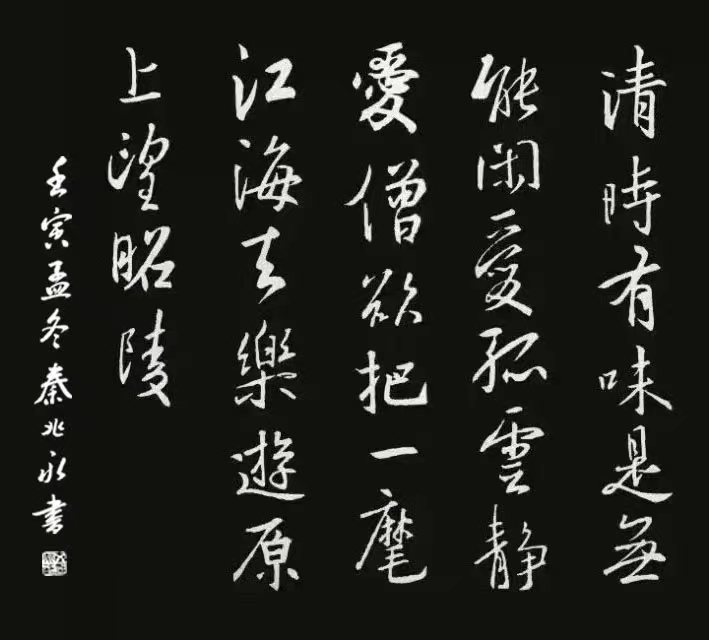 清時有味是無
能閑愛孤雲靜
愛僧欲把一麾
江海去樂遊原
上望昭陵
壬寅孟冬秦兆永書